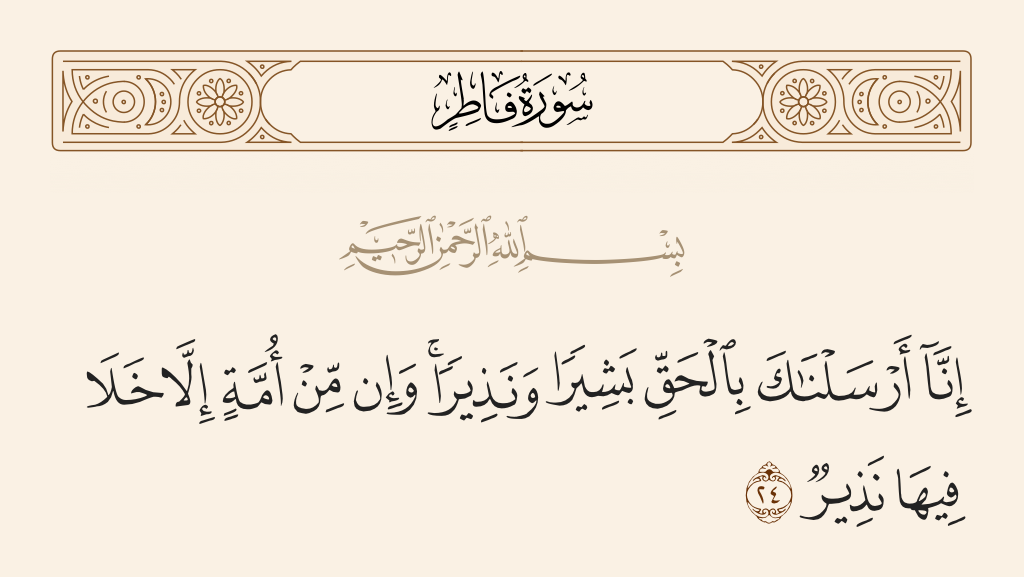 سُورَةُ فَاطِرٍ
بِسْمِ ٱللَّهِ ٱلرَّحْمَٰنِ ٱلرَّحِيمِ
إِنَّآ أَرْسَلْنَٰكَ بِٱلْحَقِّ بَشِيرًا وَنَذِيرًا ۚ وَإِن مِّنْ أُمَّةٍ إِلَّا خَلَا
فِيهَا نَذِيرٌ ٢٤